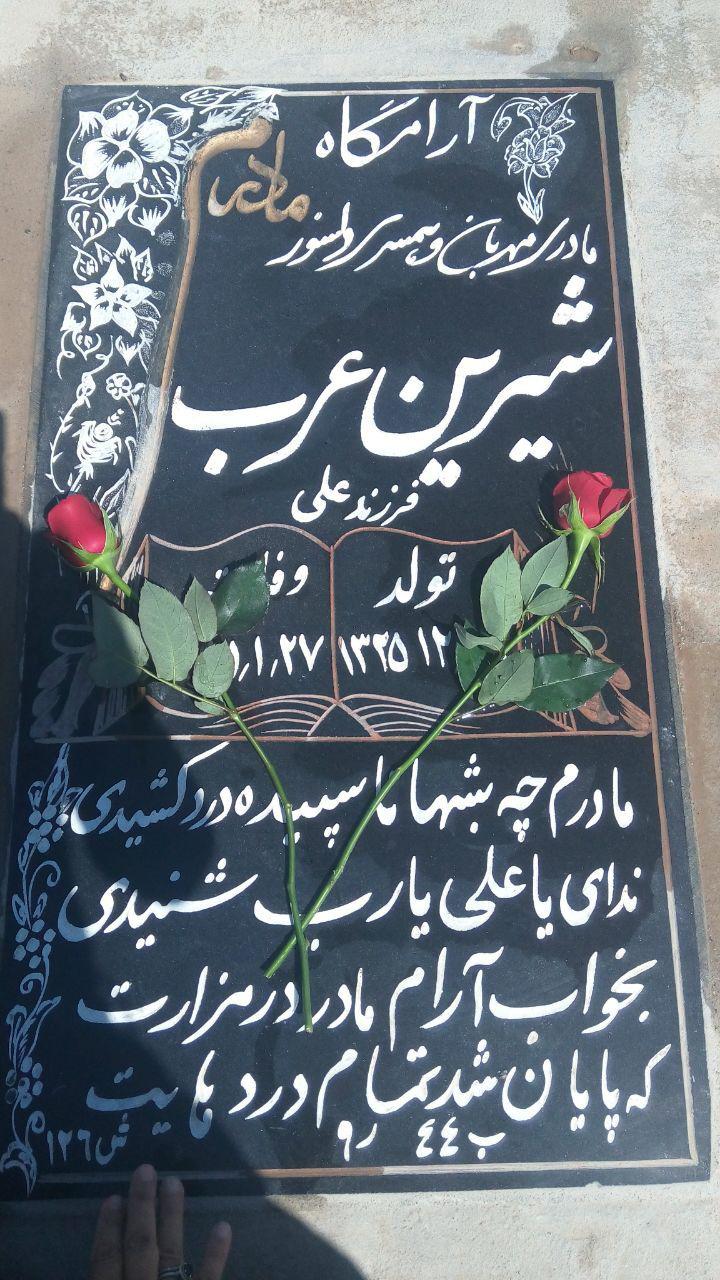 آرامگاه
مادرم
مادری مهربان و همسری دلسوز
شیرین عرب
فرزند علی
تولد
۱۳۲۵ ۱۲
۲۷٫۱٫
مادرم چه شبها تا سپیده درد کشیدی
ندای یا علی یارب شنیدی
بخواب آرام مادر در مزارت
که پایان شد تمام درد هایت
ب ٤٤ ر ۹ ش ۱۲٦